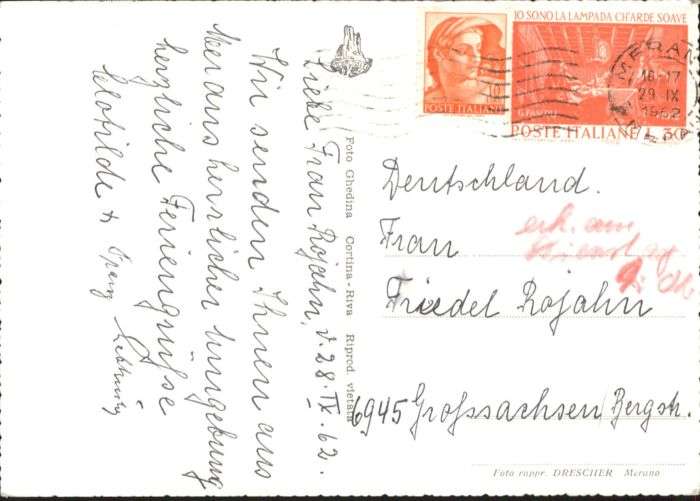 Liebe Frau Rojahn, d. 28. IX. 62.
Wir senden Ihnen aus
Merans herrlicher Umgebung
herzliche Feriengrüsse
Clotilde +
Foto Ghedina Cortina - Riva Riprod. vietata
POSTE ITALIANE
IO SONO LA LAMPADA CH'ARDE SOAVE
G. PASCOLI
POSTE ITALIANE L. 30
MERANO
16-17
29 IX
1962
Deutschland.
Frau
Friedel Rojahn
6945 Grossachsen/Bergstr.
erh. am
Dienstag
Foto rappr. DRESCHER Merano